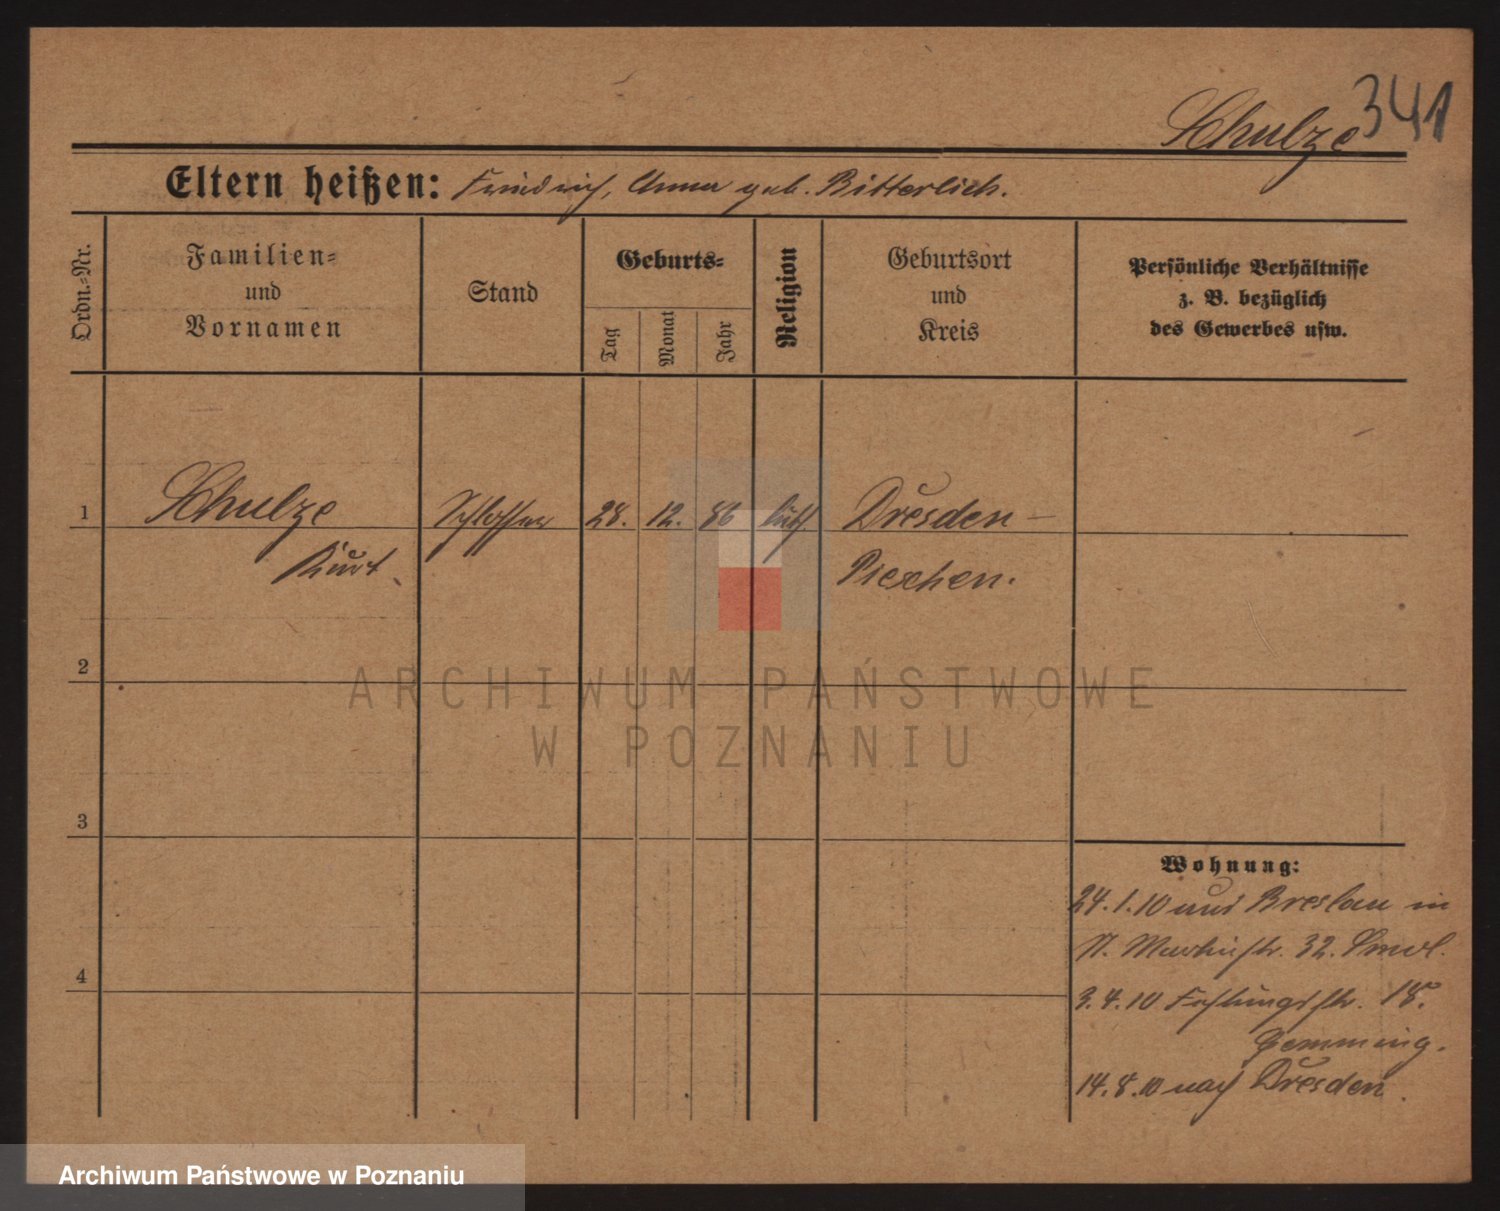 341
Schulze
Eltern heißen: Friedrich, Anna geb. Bitterlich.
Ordn.-Nr.
Familien- und Vornamen
Stand
Geburts-
Tag
Monat
Jahr
Religion
Geburtsort und Kreis
Persönliche Verhältnisse
z. B. bezüglich
des Gewerbes usw.
1 Schulze Schlosser 28. 12. 86 luth. Dresden –
Kurt Pieschen.
2
3
4
Wohnung:
24.1.10 aus Breslau in
St. Martinstr. 32.
3.4.10 Festungsstr. 18.
14.8.10 nach Dresden.
ARCHIWUM PAŃSTWOWE
W POZNANIU
Archiwum Państwowe w Poznaniu